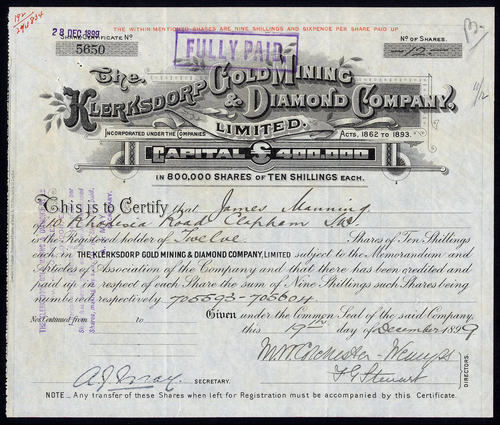 THE WITHIN-MENTIONED SHARES ARE NINE SHILLINGS AND SIXPENCE PER SHARE PAID UP
28 DEC. 1899
SHARE CERTIFICATE No
5650
FULLY PAID
No OF SHARES.
-12-
11/2
The
KLERKSDORP GOLD MINING
& DIAMOND COMPANY,
LIMITED.
INCORPORATED UNDER THE COMPANIES ACTS, 1862 TO 1893.
CAPITAL £400,000
IN 800,000 SHARES OF TEN SHILLINGS EACH.
This is to Certify that James Manning
of 10 Rhodesia Road Clapham SW
is the Registered holder of Twelve Shares of Ten Shillings
each in THE KLERKSDORP GOLD MINING & DIAMOND COMPANY, LIMITED subject to the Memorandum and
Articles of Association of the Company and that there has been credited and
paid up in respect of each Share the sum of Nine Shillings such Shares being
numbered respectively 705593-705604
No Continued from to Given under the Common Seal of the said Company,
to this 19th day of December 1899
SECRETARY.
F G Stewart
DIRECTORS.
NOTE_ Any transfer of these Shares when left for Registration must be accompanied by this Certificate.